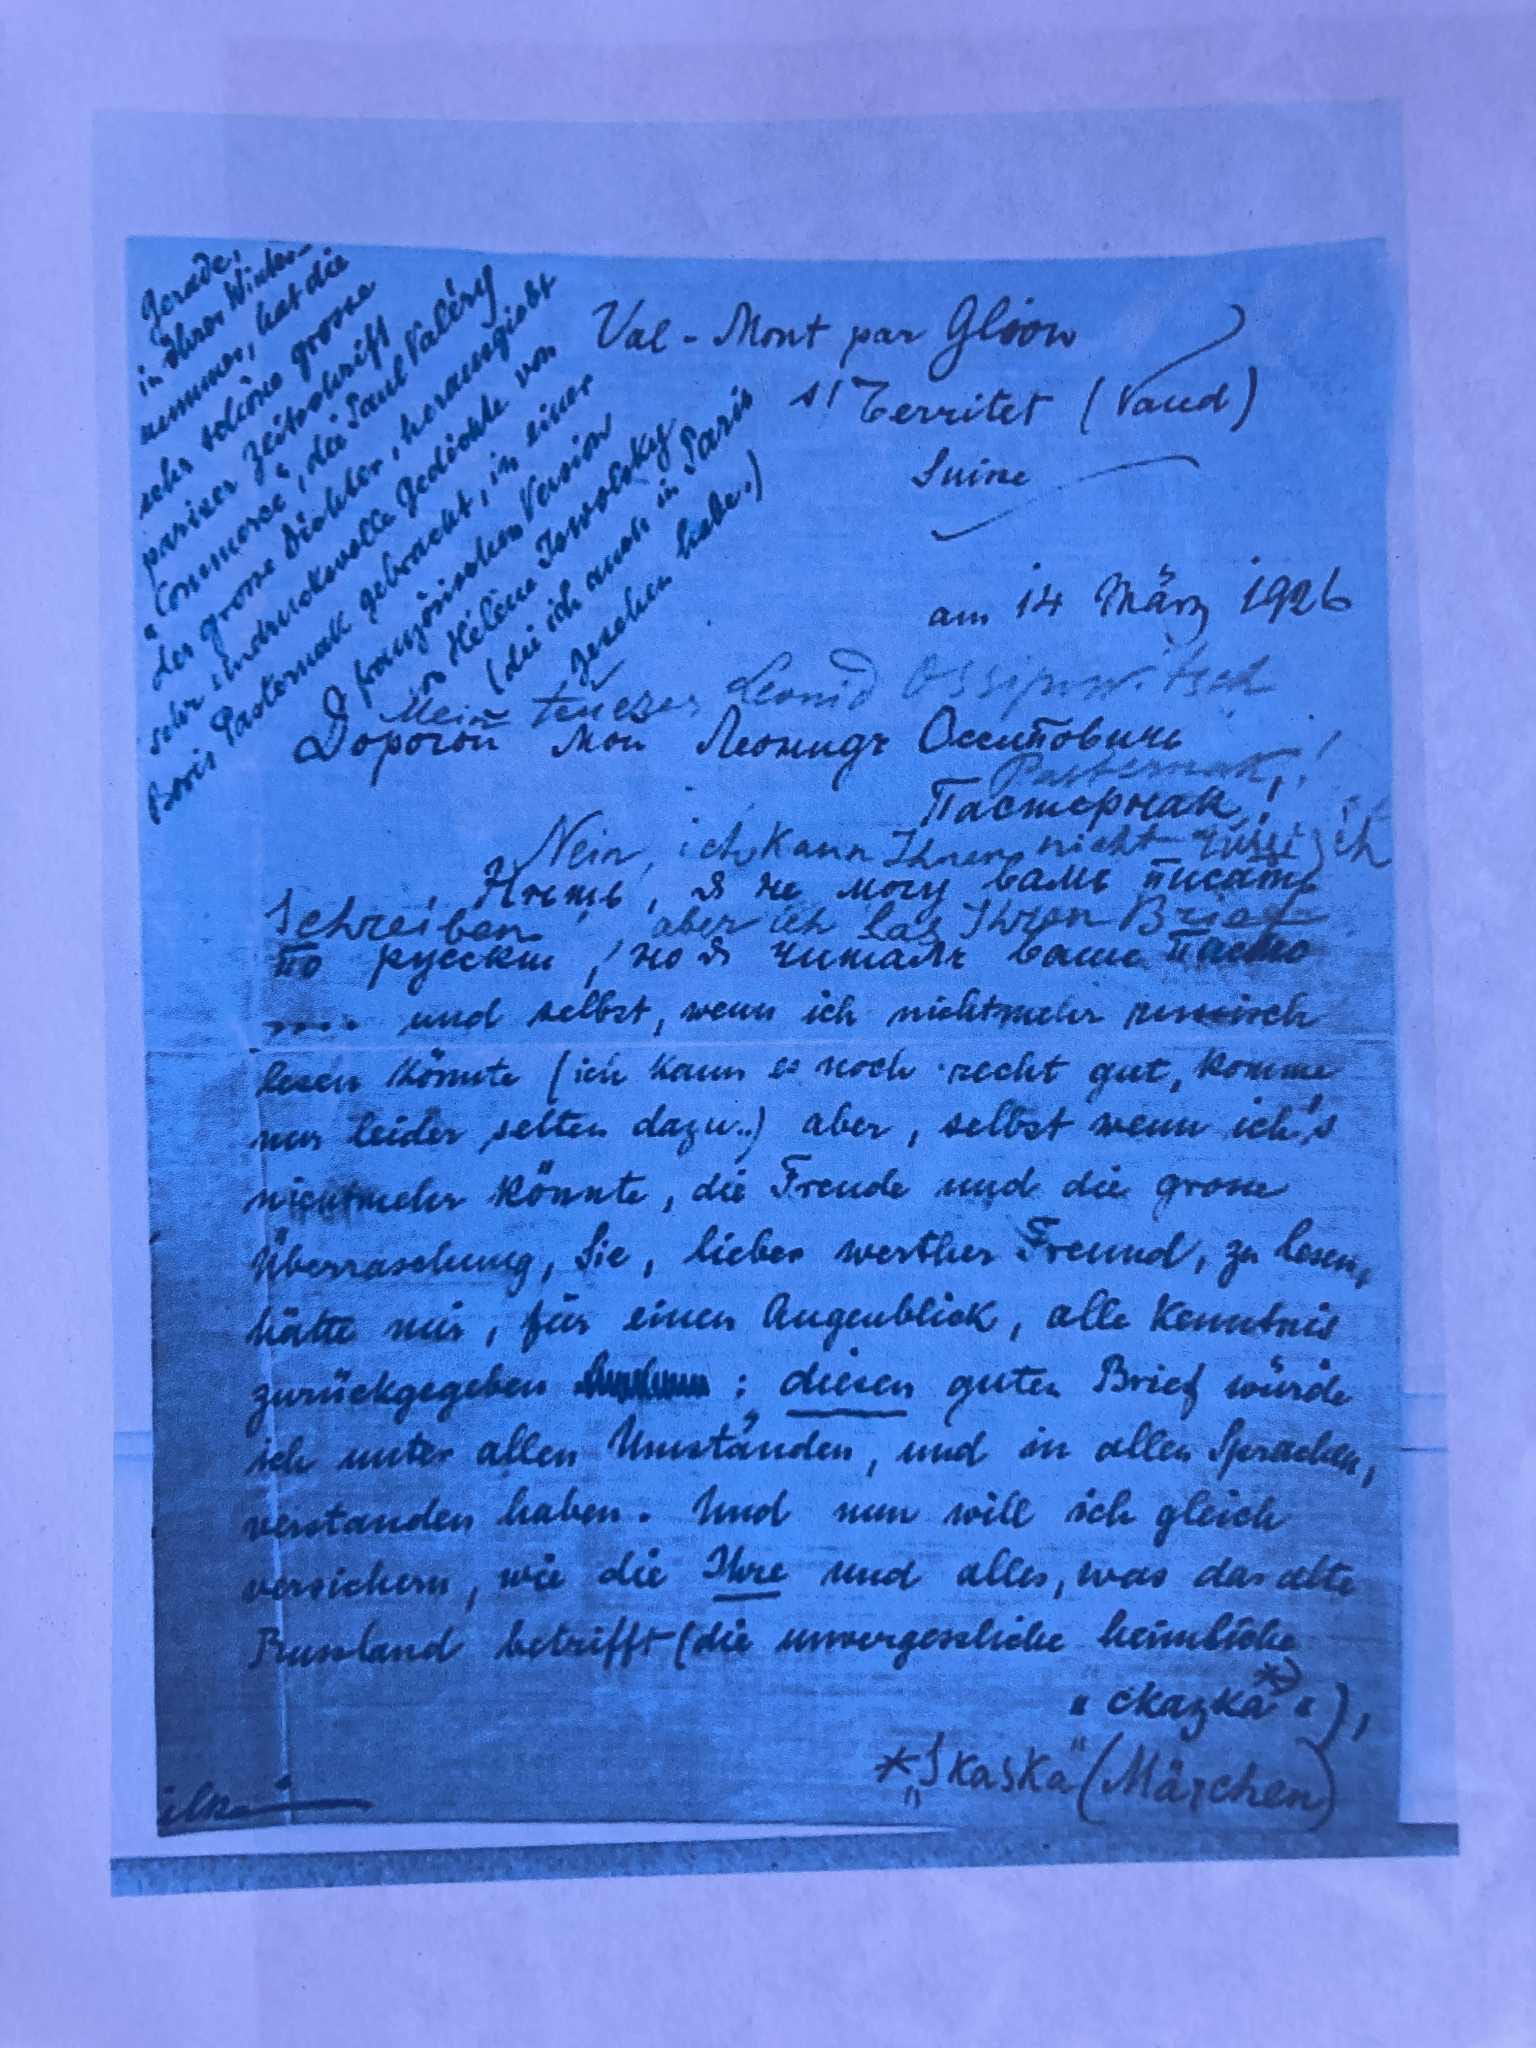 Gerade,
in ihrer Winter-
nummer, hat die
sehr schöne grosse
pariser Zeitschrift
"Commerce", die Paul Valéry
der grosse Dichter, herausgiebt
sehr eindrucksvolle Gedichte von
Boris Pasternak gebracht, in einer
französischen Version
von Hélène Iswolsky
(die ich auch in Paris
gesehen habe.)
Val-Mont par Glion
s/ Territet (Vaud)
Suisse
am 14 März 1926
Mein teurer Leonid Ossipowitsch
Дорогой мой Леонидъ Осиповичъ
Pasternak,!
Пастернак,!
Nein, ich kann Ihnen nicht russisch
Нѣтъ, я не могу вамъ писать
Schreiben, aber ich las Ihren Brief
по русски, но я читалъ ваше
.... und selbst, wenn ich nichtmehr russisch
lesen könnte (ich kann es noch recht gut, komme
nur leider selten dazu..) aber, selbst wenn ich's
nichtmehr könnte, die Freude und die grosse
Überraschung, Sie, lieber werther Freund, zu lesen,
hätte mir, für einen Augenblick, alle Kenntnis
zurückgegeben : diesen guten Brief würde
ich unter allen Umständen, und in allen Sprachen,
verstanden haben. Und nun will ich gleich
versichern, wie die Ihre und alles, was das alte
Russland betrifft (die unvergessliche heimliche
"сказка*)"),
*"Skaska" (Märchen)